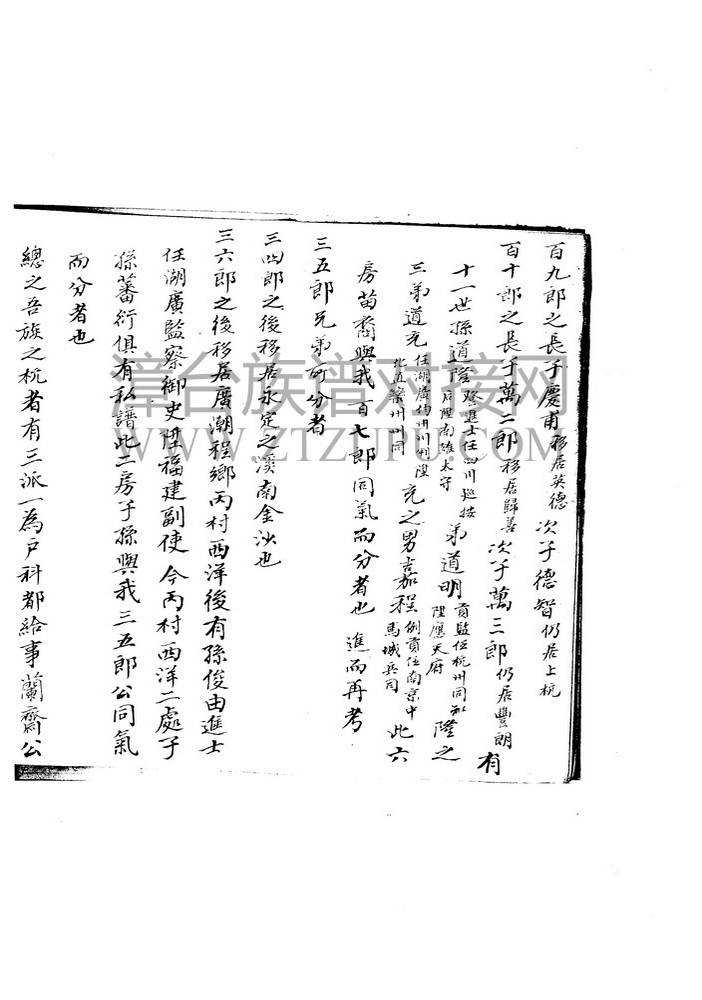 百九郎之長子慶甫移居英德次子德智仍居上杭
百十郎之長子萬二郎移居歸善次子萬三郎仍居豐朗有
十一世孫道隆登進士任四川巡按后陞南雄太守弟道明貢監任杭州同知陞應天府隆之
三弟道充任湖廣均州州判陞北直灤州州同充之男嘉程例貢任南京中馬城兵司此六
房苗裔與我百七郎同氣而分者也進而再考
三五郎兄弟所分者
三四郎之後移居永定之溪南金沙也
三六郎之後移居廣潮程鄉丙村西洋後有孫俊由進士
任湖廣監察御史陞福建副使今丙村西洋二處子
孫蕃衍俱有私譜此二房子孫與我三五郎公同氣
而分者也
總之吾族之杭者有三派一為戶科都給事蘭齋公
漳台族谱对接网
WWW.ZTZUPU.COM